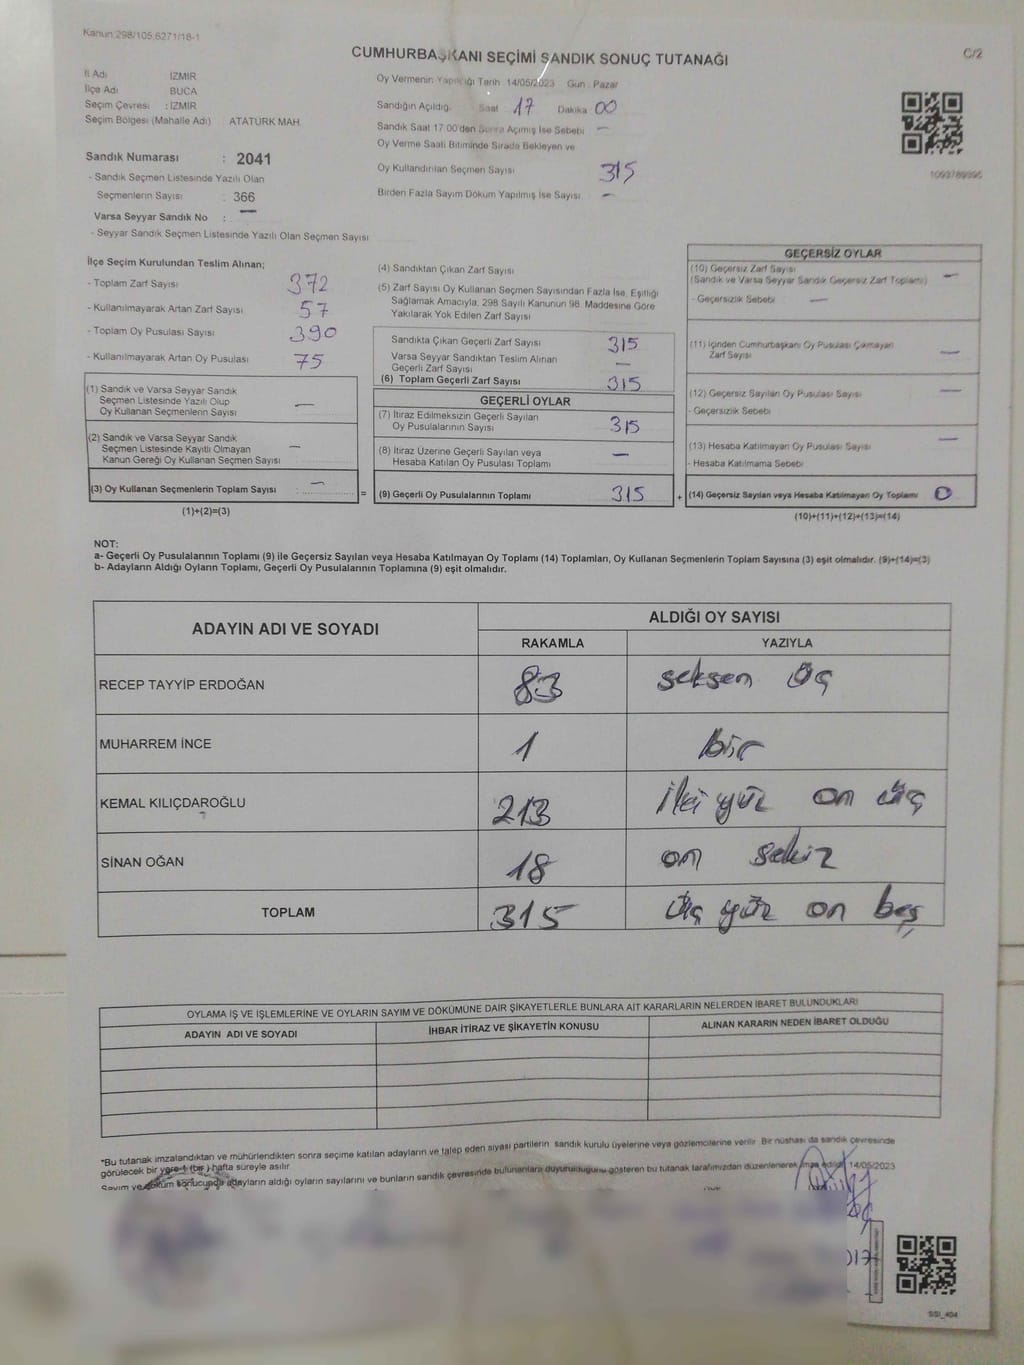 Kanun:298/105,6271/18-1
CUMHURBAŞKANI SEÇİMİ SANDIK SONUÇ TUTANAĞI
C/2
İl Adı İZMİR
İlçe Adı BUCA
Seçim Çevresi : İZMİR
Seçim Bölgesi (Mahalle Adı) ATATÜRK MAH.
Sandık Numarası : 2041
- Sandık Seçmen Listesinde Yazılı Olan
Seçmenlerin Sayısı : 366
Varsa Seyyar Sandık No : —
- Seyyar Sandık Seçmen Listesinde Yazılı Olan Seçmen Sayısı
Oy Vermenin Yapıldığı Tarih 14/05/2023 Gün : Pazar
Sandığın Açıldığı Saat 17 Dakika 00
Sandık Saat 17:00'den Sonra Açılmış İse Sebebi —
Oy Verme Saati Bitiminde Sırada Bekleyen ve
Oy Kullandırılan Seçmen Sayısı 315
Birden Fazla Sayım Döküm Yapılmış İse Sayısı —
1093789995
İlçe Seçim Kurulundan Teslim Alınan;
- Toplam Zarf Sayısı 372
- Kullanılmayarak Artan Zarf Sayısı 57
- Toplam Oy Pusulası Sayısı 390
- Kullanılmayarak Artan Oy Pusulası 75
(1) Sandık ve Varsa Seyyar Sandık
Seçmen Listesinde Yazılı Olup
Oy Kullanan Seçmenlerin Sayısı —
(2) Sandık ve Varsa Seyyar Sandık
Seçmen Listesinde Kayıtlı Olmayan
Kanun Gereği Oy Kullanan Seçmen Sayısı —
(3) Oy Kullanan Seçmenlerin Toplam Sayısı —
(1)+(2)=(3)
(4) Sandıktan Çıkan Zarf Sayısı
(5) Zarf Sayısı Oy Kullanan Seçmen Sayısından Fazla İse, Eşitliği
Sağlamak Amacıyla, 298 Sayılı Kanunun 98. Maddesine Göre
Yakılarak Yok Edilen Zarf Sayısı
Sandıkta Çıkan Geçerli Zarf Sayısı 315
Varsa Seyyar Sandıktan Teslim Alınan
Geçerli Zarf Sayısı —
(6) Toplam Geçerli Zarf Sayısı 315
GEÇERLİ OYLAR
(7) İtiraz Edilmeksizin Geçerli Sayılan
Oy Pusulalarının Sayısı 315
(8) İtiraz Üzerine Geçerli Sayılan veya
Hesaba Katılan Oy Pusulası Toplamı —
= (9) Geçerli Oy Pusulalarının Toplamı 315
GEÇERSİZ OYLAR
(10) Geçersiz Zarf Sayısı
(Sandık ve Varsa Seyyar Sandık Geçersiz Zarf Toplamı) —
- Geçersizlik Sebebi —
(11) İçinden Cumhurbaşkanı Oy Pusulası Çıkmayan
Zarf Sayısı —
(12) Geçersiz Sayılan Oy Pusulası Sayısı —
- Geçersizlik Sebebi
(13) Hesaba Katılmayan Oy Pusulası Sayısı —
- Hesaba Katılmama Sebebi
+ (14) Geçersiz Sayılan veya Hesaba Katılmayan Oy Toplamı 0
(10)+(11)+(12)+(13)=(14)
NOT:
a- Geçerli Oy Pusulalarının Toplamı (9) ile Geçersiz Sayılan veya Hesaba Katılmayan Oy Toplamı (14) Toplamları, Oy Kullanan Seçmenlerin Toplam Sayısına (3) eşit olmalıdır. (9)+(14)=(3)
b- Adayların Aldığı Oyların Toplamı, Geçerli Oy Pusulalarının Toplamına (9) eşit olmalıdır.
ADAYIN ADI VE SOYADI
ALDIĞI OY SAYISI
RAKAMLA YAZIYLA
RECEP TAYYİP ERDOĞAN 83 seksen üç
MUHARREM İNCE 1 bir
KEMAL KILIÇDAROĞLU 213 iki yüz on üç
SİNAN OĞAN 18 on sekiz
TOPLAM 315 üç yüz on beş
OYLAMA İŞ VE İŞLEMLERİNE VE OYLARIN SAYIM VE DÖKÜMÜNE DAİR ŞİKAYETLERLE BUNLARA AİT KARARLARIN NELERDEN İBARET BULUNDUKLARI
ADAYIN ADI VE SOYADI İHBAR İTİRAZ VE ŞİKAYETİN KONUSU ALINAN KARARIN NEDEN İBARET OLDUĞU
*Bu tutanak imzalandıktan ve mühürlendikten sonra seçime katılan adayların ve talep eden siyasi partilerin sandık kurulu üyelerine veya gözlemcilerine verilir. Bir nüshası da sandık çevresinde
görülecek bir yere 1 (bir) hafta süreyle asılır.
Sayım ve döküm sonucunda adayların aldığı oyların sayılarını ve bunların sandık çevresinde bulunanlara duyurulduğunu gösteren bu tutanak tarafımızdan düzenlenerek imza edildi. 14/05/2023
SSI_404